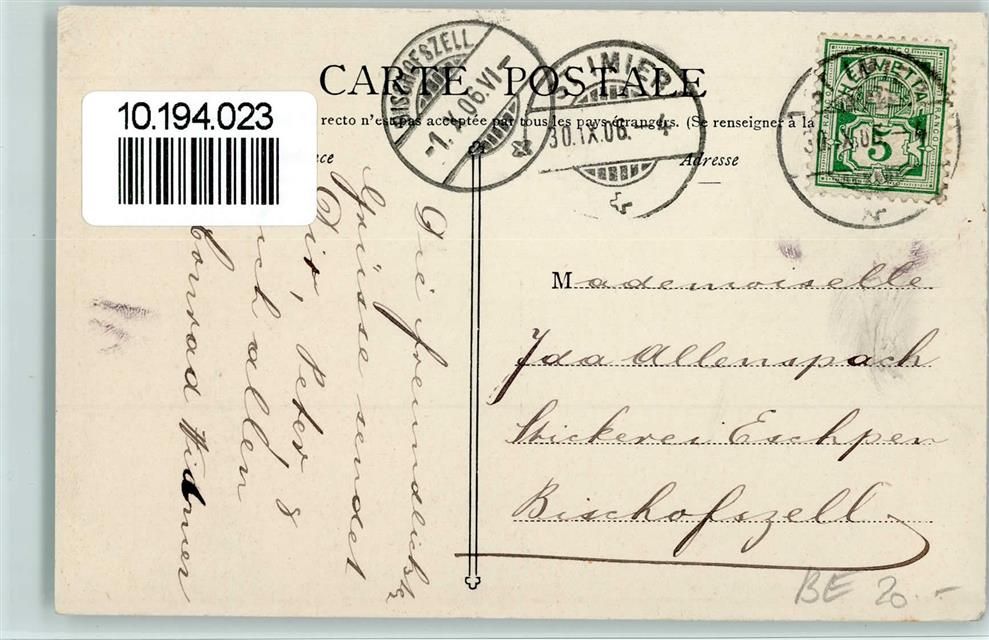 10.194.023
CARTE POSTALE
recto n'est pas acceptée par tous les pays étrangers. (Se renseigner à la
Adresse
BISCHOFSZELL
-1.X.06.VI-
ST. IMIER
30.IX.06.-4
HELVETIA
FRANCO
5
Die freundlichste
Grüsse sendet
Dir, Peter &
allen
Conrad Widmer
Mademoiselle
Ida Allenspach
Stickerei Eschpen
Bischofszell
BE 20.-